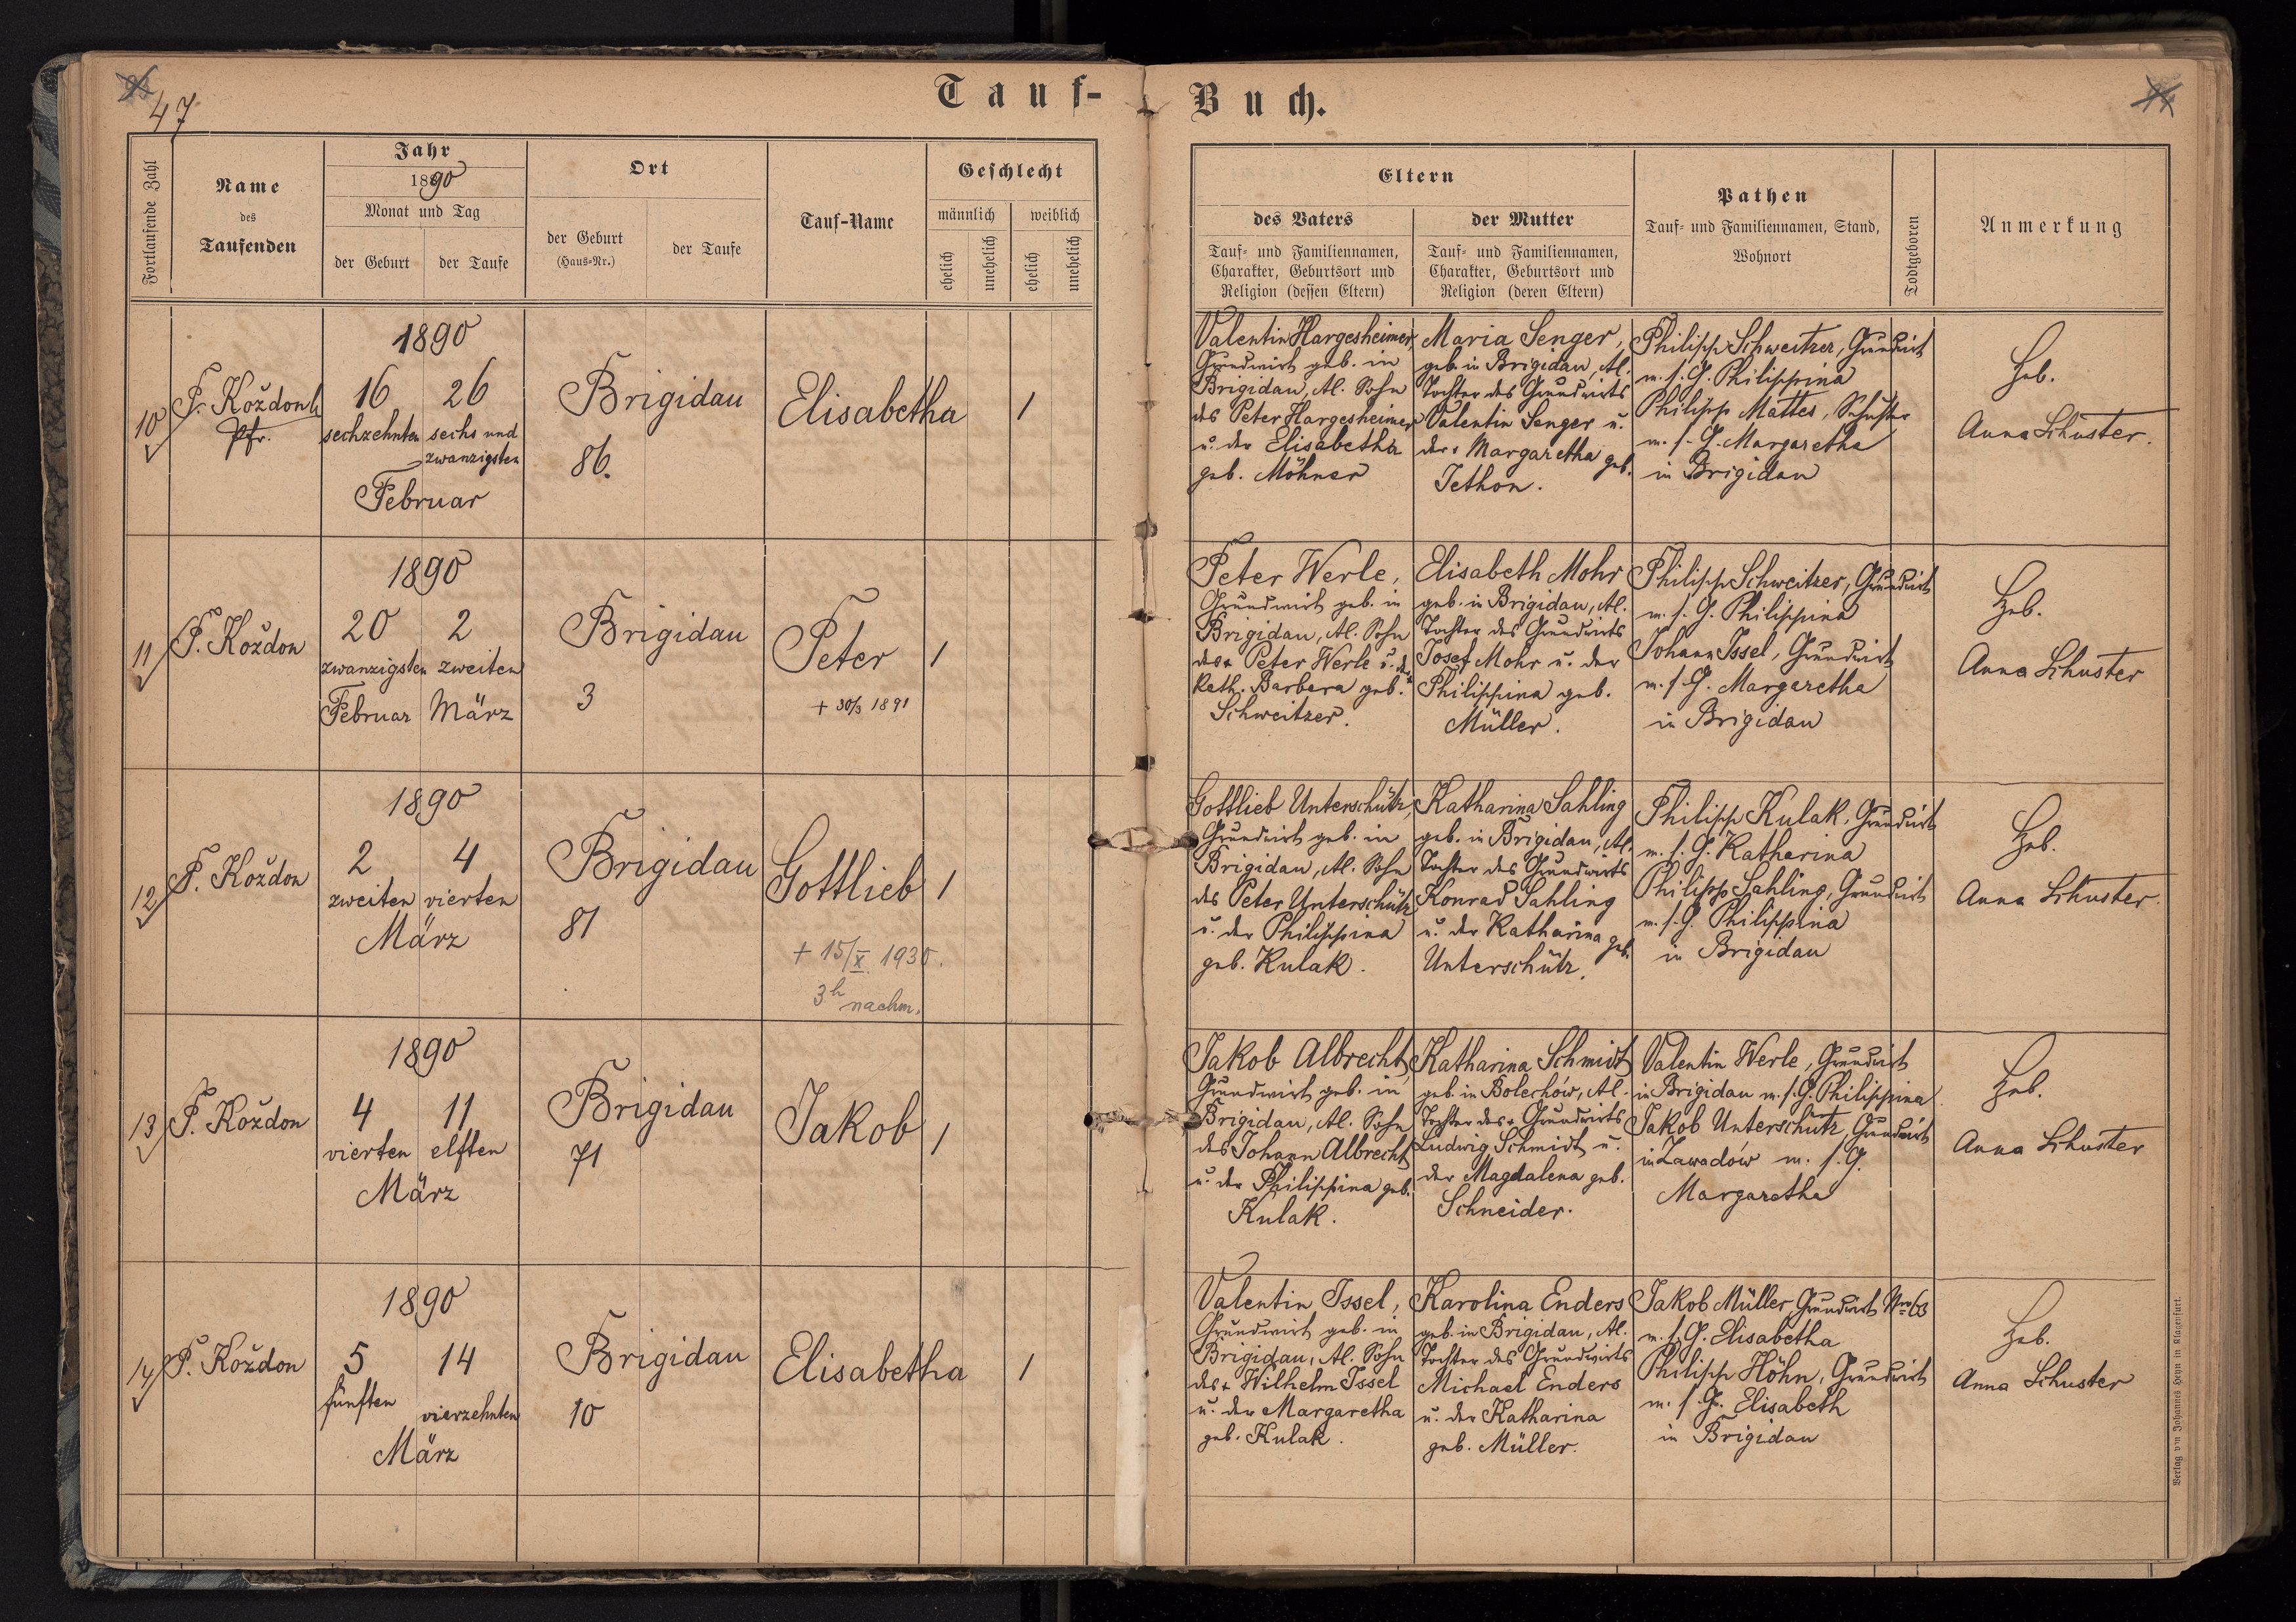 47
Tauf-
Buch.
Fortlaufende Zahl
Name
des
Taufenden
Jahr
1890
Monat und Tag
der Geburt
der Taufe
Ort
der Geburt
(Haus-Nr.)
der Taufe
Tauf-Name
Geschlecht
männlich
weiblich
ehelich
unehelich
ehelich
unehelich
Eltern
des Vaters
Tauf- und Familiennamen,
Charakter, Geburtsort und
Religion (dessen Eltern)
der Mutter
Tauf- und Familiennamen,
Charakter, Geburtsort und
Religion (deren Eltern)
Pathen
Tauf- und Familiennamen, Stand,
Wohnort
Todtgeboren
Anmerkung
10
F. Koždon
Pfr.
1890
16 26
sechzehnten sechs und
zwanzigsten
Februar
Brigidau
86.
Elisabetha
1
Valentin Hargesheimer,
Grundwirt geb. in
Brigidau, Al. Sohn
des Peter Hargesheimer
u. der Elisabetha
geb. Möhner
Maria Senger,
geb. in Brigidau, Al.
Tochter des Grundwirts
Valentin Senger u.
der + Margaretha geb.
Jethon.
Philipp Schweitzer, Grundwirt
m. s. G. Philippina
Philipp Mattes, Schuster
m. s. G. Margaretha
in Brigidau
Heb.
Anna Schuster.
11
F. Koždon
1890
20 2
zwanzigsten zweiten
Februar März
Brigidau
3
Peter
+ 30/3 1891
1
Peter Werle,
Grundwirt geb. in
Brigidau, Al. Sohn
des + Peter Werle u. der
Kath. Barbara geb.
Schweitzer.
Elisabeth Mohr
geb. in Brigidau, Al.
Tochter des Grundwirts
Josef Mohr u. der
Philippina geb.
Müller.
Philipp Schweitzer, Grundwirt
m. s. G. Philippina
Johann Issel, Grundwirt
m. s. G. Margaretha
in Brigidau
Heb.
Anna Schuster
12
F. Koždon
1890
2 4
zweiten vierten
März
Brigidau
81
Gottlieb
+ 15/X 1930.
3h nachm.
1
Gottlieb Unterschütz,
Grundwirt geb. in
Brigidau, Al. Sohn
des Peter Unterschütz
u. der Philippina
geb. Kulak.
Katharina Sahling
geb. in Brigidau, Al.
Tochter des Grundwirts
Konrad Sahling
u. der Katharina geb.
Unterschütz.
Philipp Kulak, Grundwirt
m. s. G. Katharina
Philipp Sahling, Grundwirt
m. s. G. Philippina
in Brigidau
Heb.
Anna Schuster.
13
F. Koždon
1890
4 11
vierten elften
März
Brigidau
71
Jakob
1
Jakob Albrecht,
Grundwirt geb. in
Brigidau, Al. Sohn
des Johann Albrecht
u. der Philippina geb.
Kulak.
Katharina Schmidt
geb. in Bolechów, Al.
Tochter des + Grundwirts
Ludwig Schmidt u.
der Magdalena geb.
Schneider.
Valentin Werle, Grundwirt
in Brigidau m. s. G. Philippina
Jakob Unterschütz, Grundwirt
in Zawadów m. s. G.
Margaretha
Heb.
Anna Schuster
14
F. Koždon
1890
5 14
fünften vierzehnten
März
Brigidau
10
Elisabetha
1
Valentin Issel,
Grundwirt geb. in
Brigidau, Al. Sohn
des + Wilhelm Issel
u. der Margaretha
geb. Kulak.
Karolina Enders
geb. in Brigidau, Al.
Tochter des Grundwirts
Michael Enders
u. der Katharina
geb. Müller.
Jakob Müller, Grundwirt Nro 63
m. s. G. Elisabetha
Philipp Höhn, Grundwirt
m. s. G. Elisabeth
in Brigidau
Heb.
Anna Schuster
Verlag von Johannes Heyn in Klagenfurt.